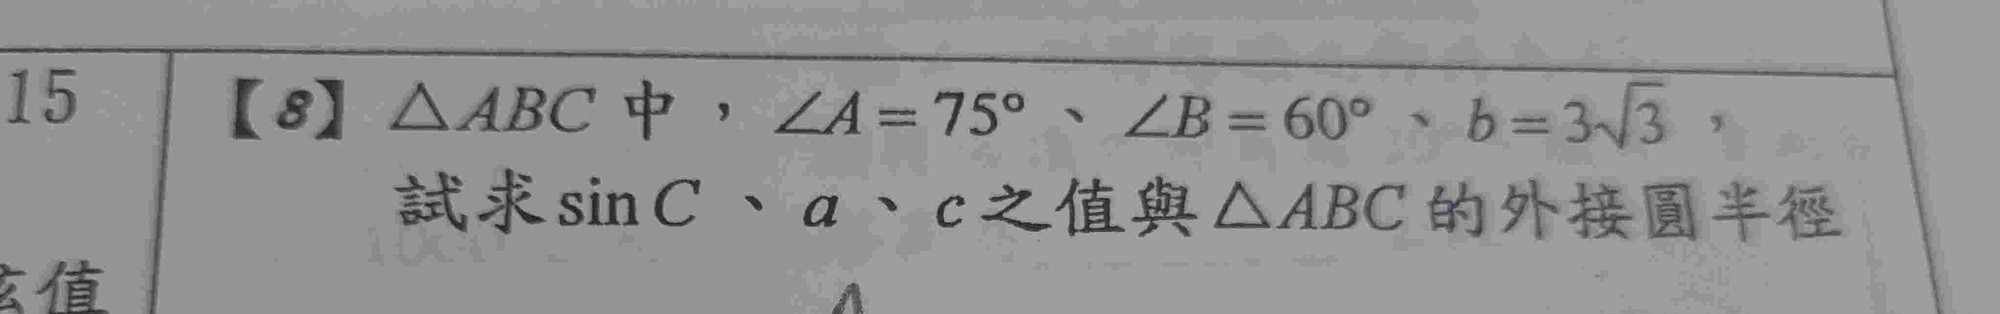 15
【8】△ABC 中，∠A = 75°、∠B = 60°、b = 3√3，
試求 sin C、a、c 之值與 △ABC 的外接圓半徑
值